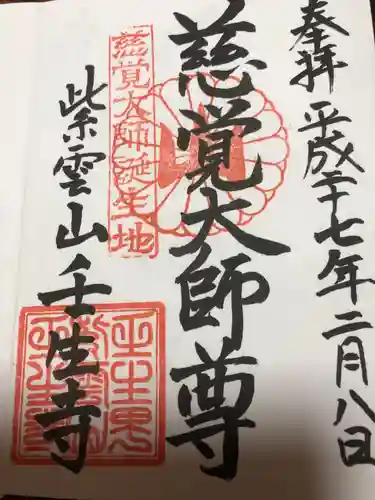 奉拝 平成二十七年二月八日
慈覚大師尊
慈覚大師誕生地
紫雲山壬生寺